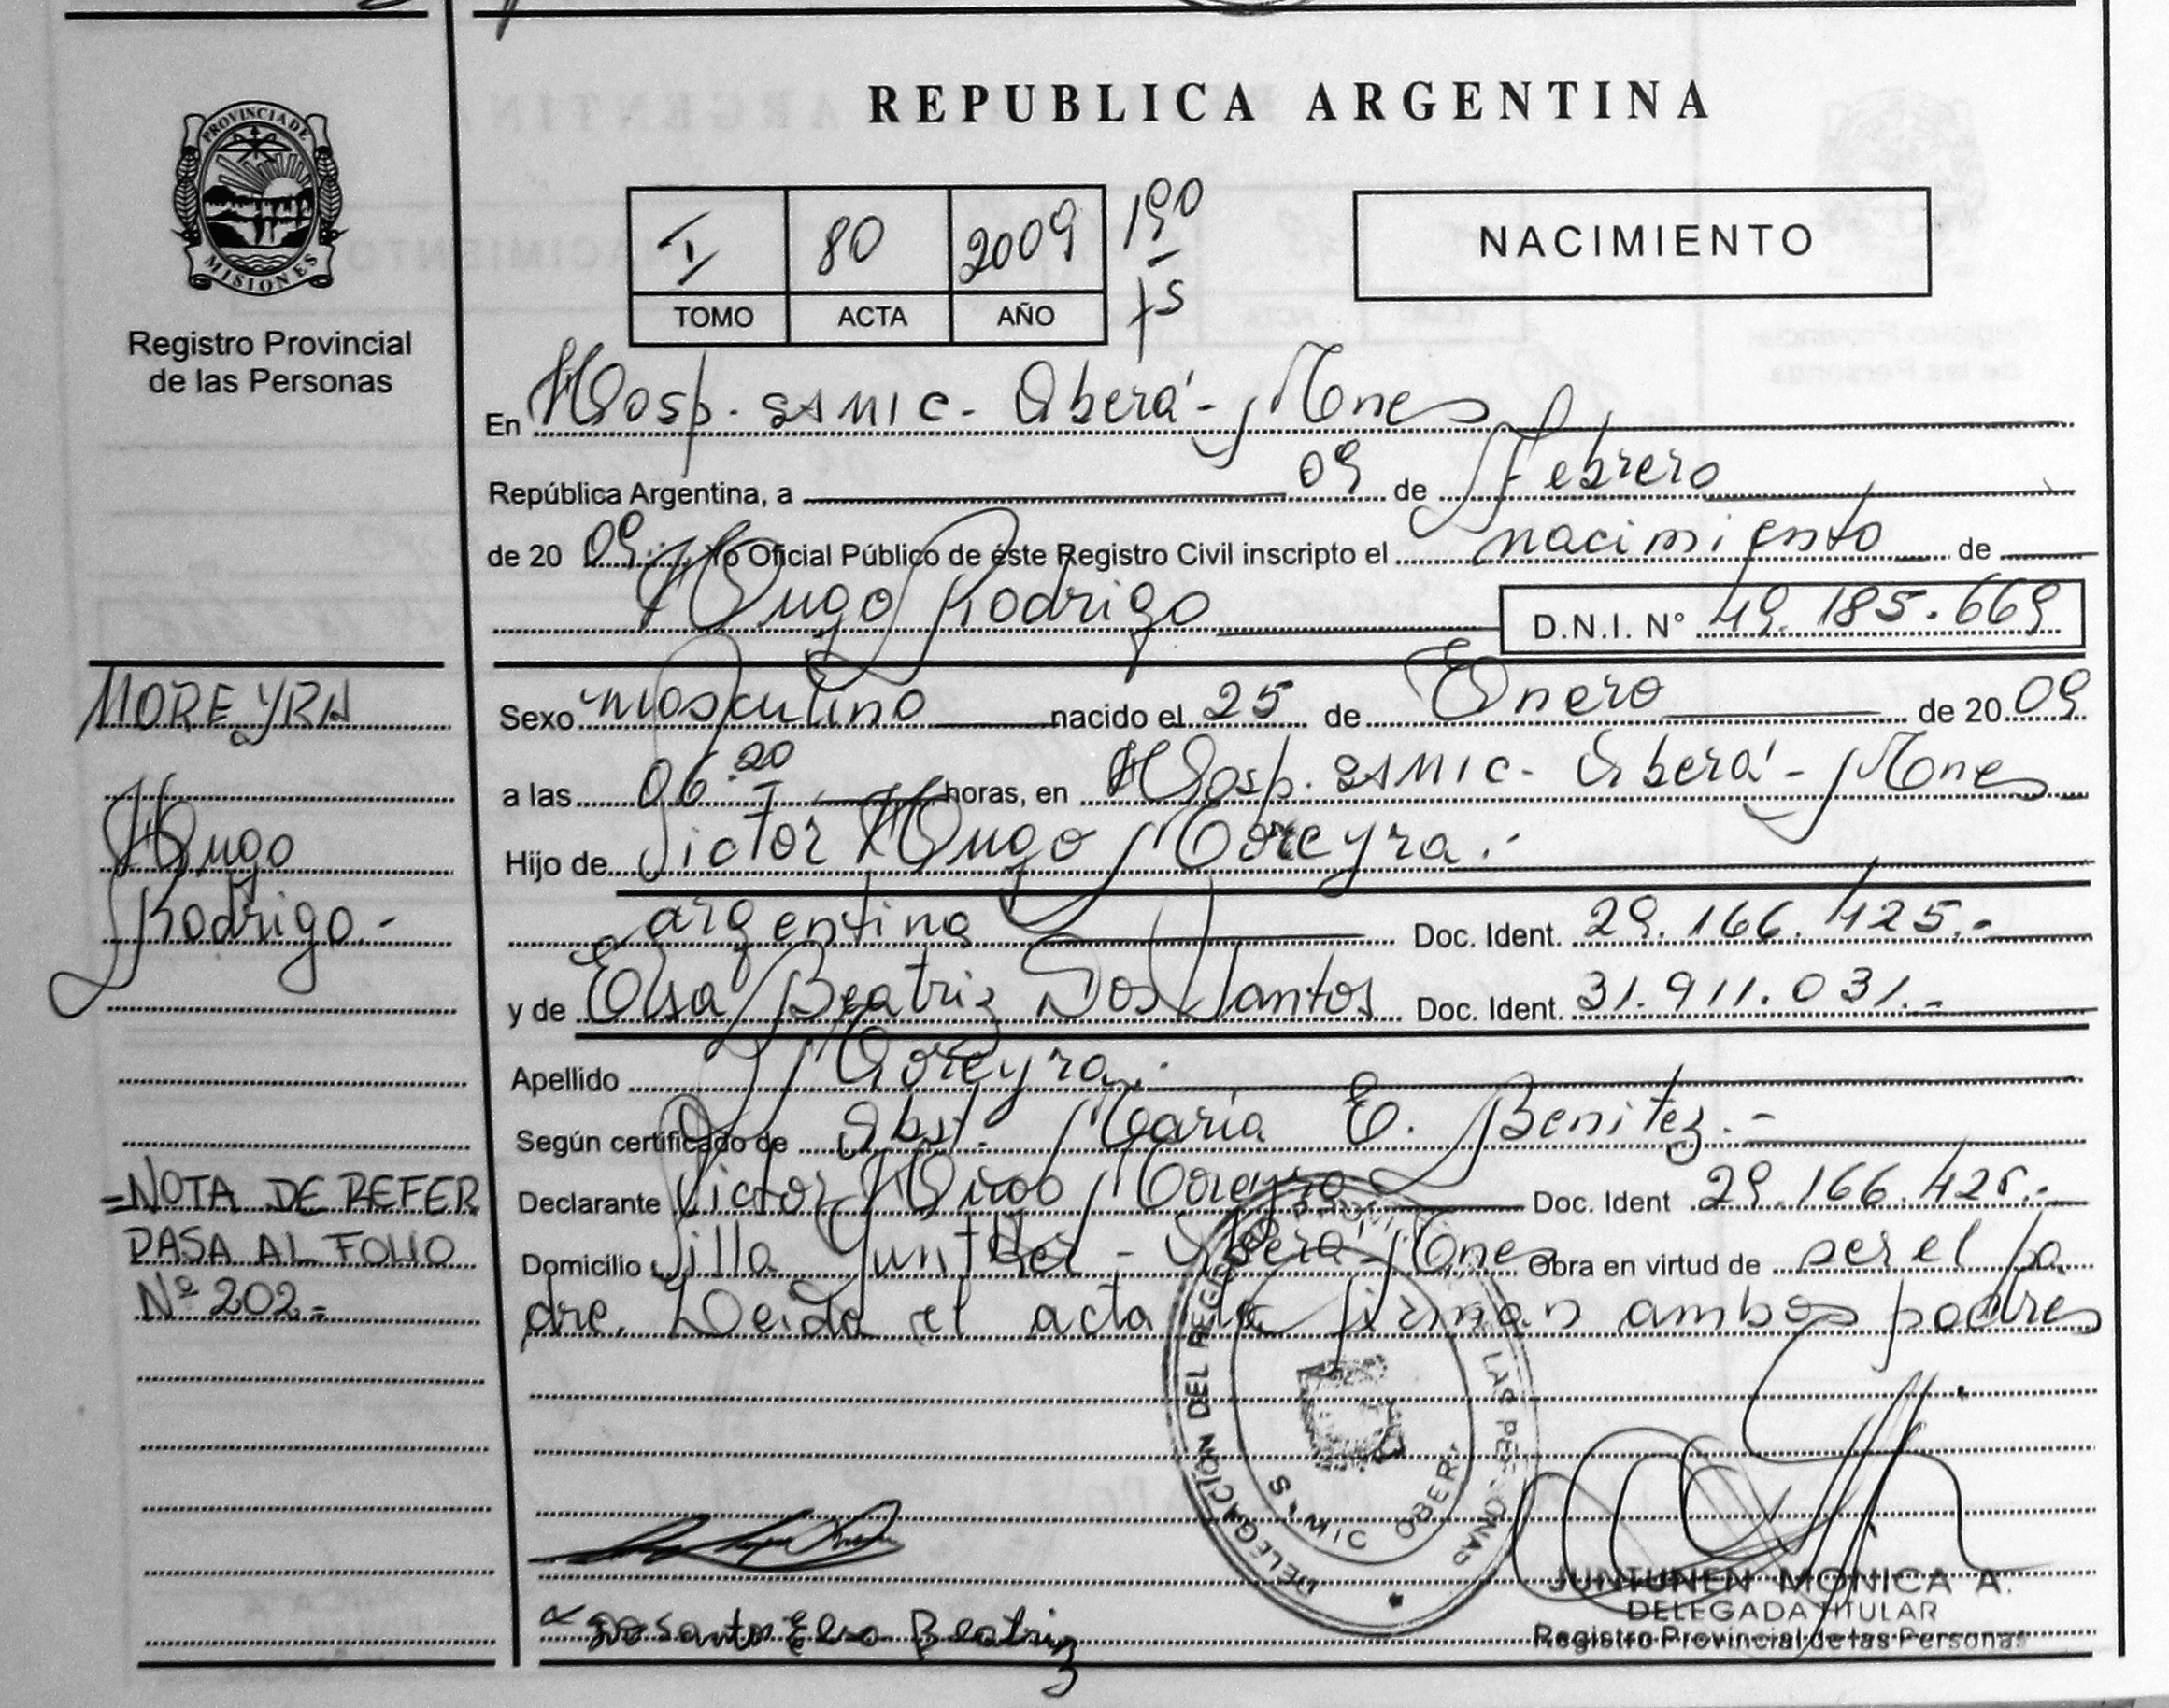 PROVINCIA DE
MISIONES
Registro Provincial
de las Personas
REPUBLICA ARGENTINA
I 80 2009 190
TOMO ACTA AÑO
NACIMIENTO
En Hosp. SAMIC - Oberá - Mnes
República Argentina, a 09 de Febrero
de 20 09 Yo Oficial Público de éste Registro Civil inscripto el nacimiento de
Hugo Rodrigo D.N.I. N° 49.185.669
MOREYRA
Hugo
Rodrigo.-
=NOTA DE REFER
PASA AL FOLIO
Nº 202=
Sexo masculino nacido el 25 de Enero de 20 09
a las 06.20 horas, en Hosp. SAMIC - Oberá - Mnes
Hijo de Victor Hugo Moreyra.-
argentina Doc. Ident. 29.166.425.-
y de Elsa Beatriz Dos Santos Doc. Ident. 31.911.031.-
Apellido Moreyra.-
Según certificado de Obst. María E. Benitez.-
Declarante Victor Hugo Moreyra Doc. Ident 29.166.425.-
Domicilio Villa Gunther - Oberá - Mnes Obra en virtud de ser el pa
dre. Leida el acta la firman ambos padres
DELEGACIÓN DEL REG LAS PERSONAS
S.A.MIC OBERÁ
Dos Santos Elsa Beatriz
JUNTUNEN MONICA A.
DELEGADA TITULAR
Registro Provincial de las Personas